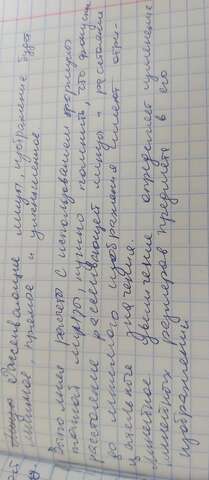 рассеивающие линзы, изображение будет
мнимое, прямое и уменьшенное
расчета с использованием формулы
тонкой линзы, нужно помнить, что фокусное
расстояние рассеивающей линзы и расстояние
до мнимого изображения имеют отри-
цательное значение.
Линейное увеличение определяет изменение
линейных размеров предмета в его
изображении